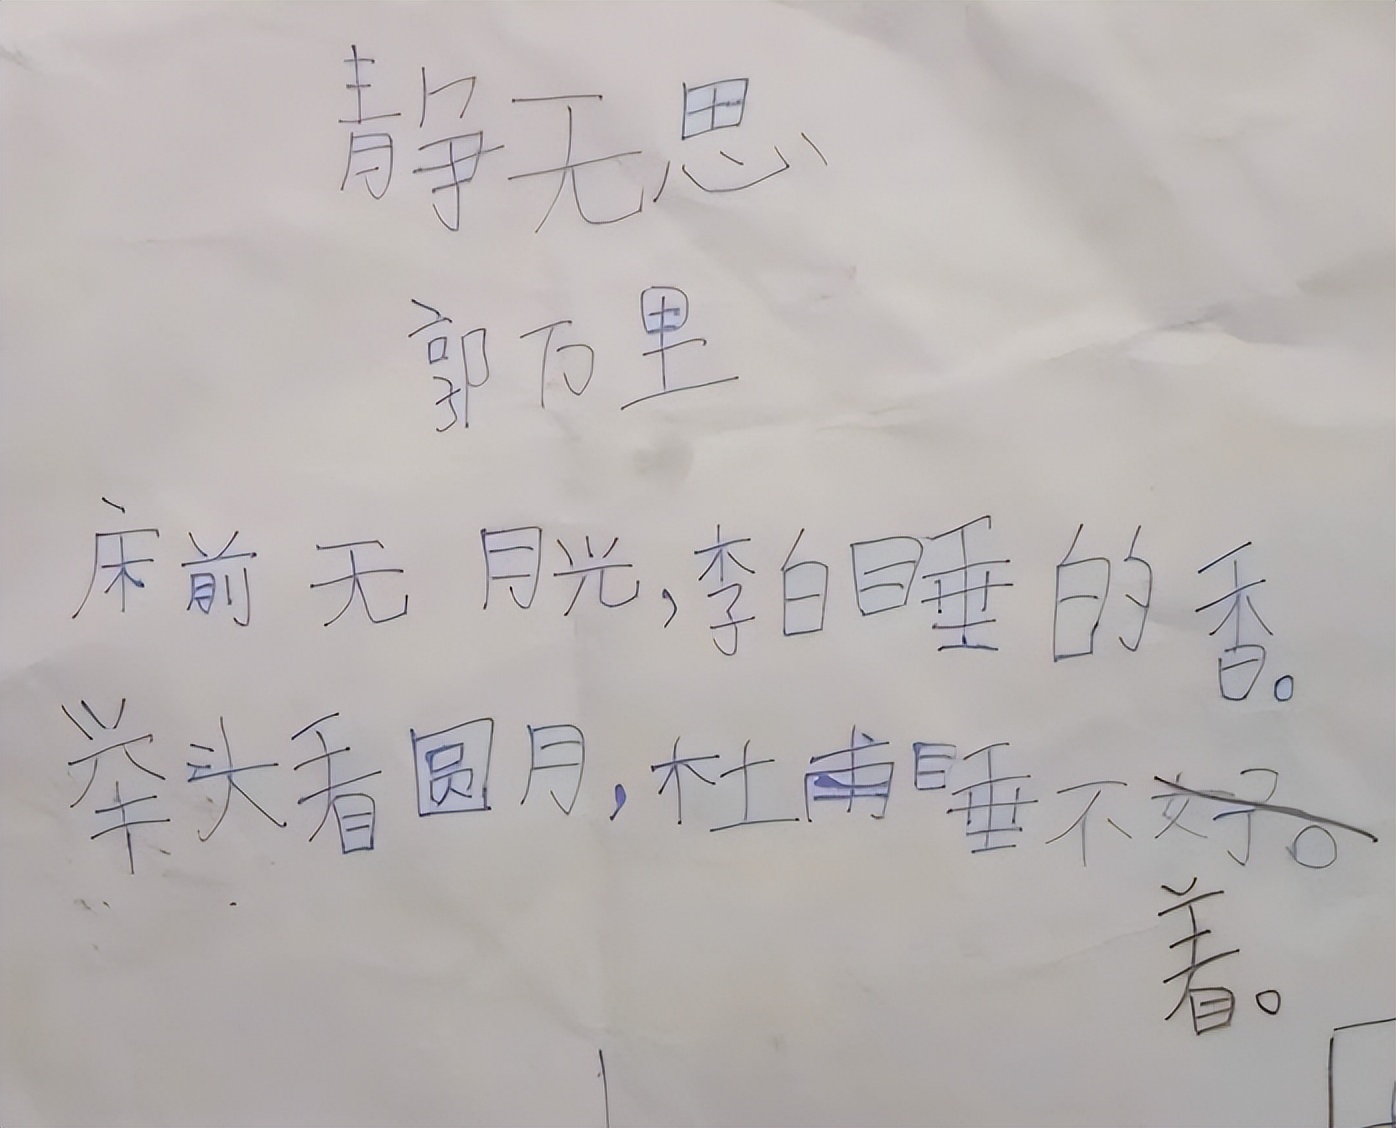 静无思
郭万里
床前无月光，李白睡的香。
举头看圆月，杜甫睡不好。
着。